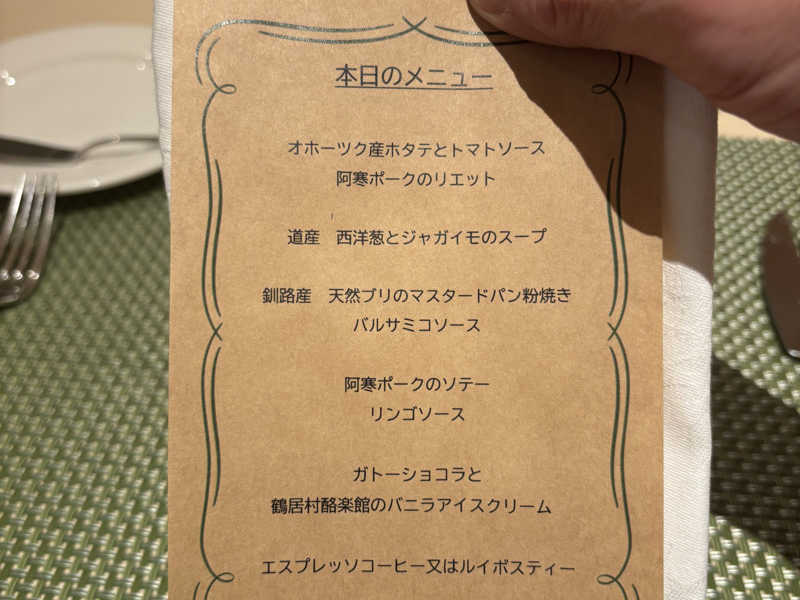 本日のメニュー
オホーツク産ホタテとトマトソース
阿寒ポークのリエット
道産　西洋葱とジャガイモのスープ
釧路産　天然ブリのマスタードパン粉焼き
バルサミコソース
阿寒ポークのソテー
リンゴソース
ガトーショコラと
鶴居村酪楽館のバニラアイスクリーム
エスプレッソコーヒー又はルイボスティー